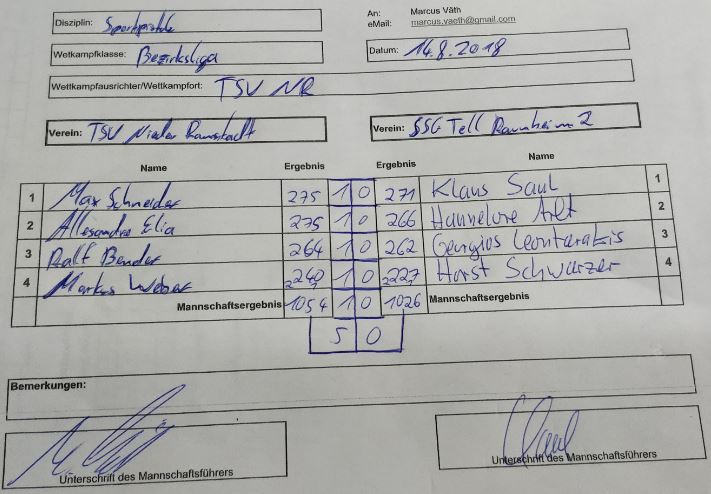 Disziplin: Sportpistole
An: Marcus Väth
eMail: marcus.vaeth@gmail.com
Wetkampfklasse: Bezirksliga
Datum: 14.8.2018
Wettkampfausrichter/Wettkampfort: TSV NR
Verein: TSV Nieder Ramstadt
Verein: SSG Tell Raunheim 2
Name Ergebnis Ergebnis Name
1 Max Schneider 275 1 0 271 Klaus Saul 1
2 Allesandro Elia 275 1 0 266 Hannelore Alt 2
3 Ralf Bender 264 1 0 262 Georgios Leontaratis 3
4 Markus Weber 240 1 0 227 Horst Schwarzer 4
Mannschaftsergebnis 1054 1 0 1026 Mannschaftsergebnis
5 0
Bemerkungen:
Unterschrift des Mannschaftsführers
Unterschrift des Mannschaftsführers